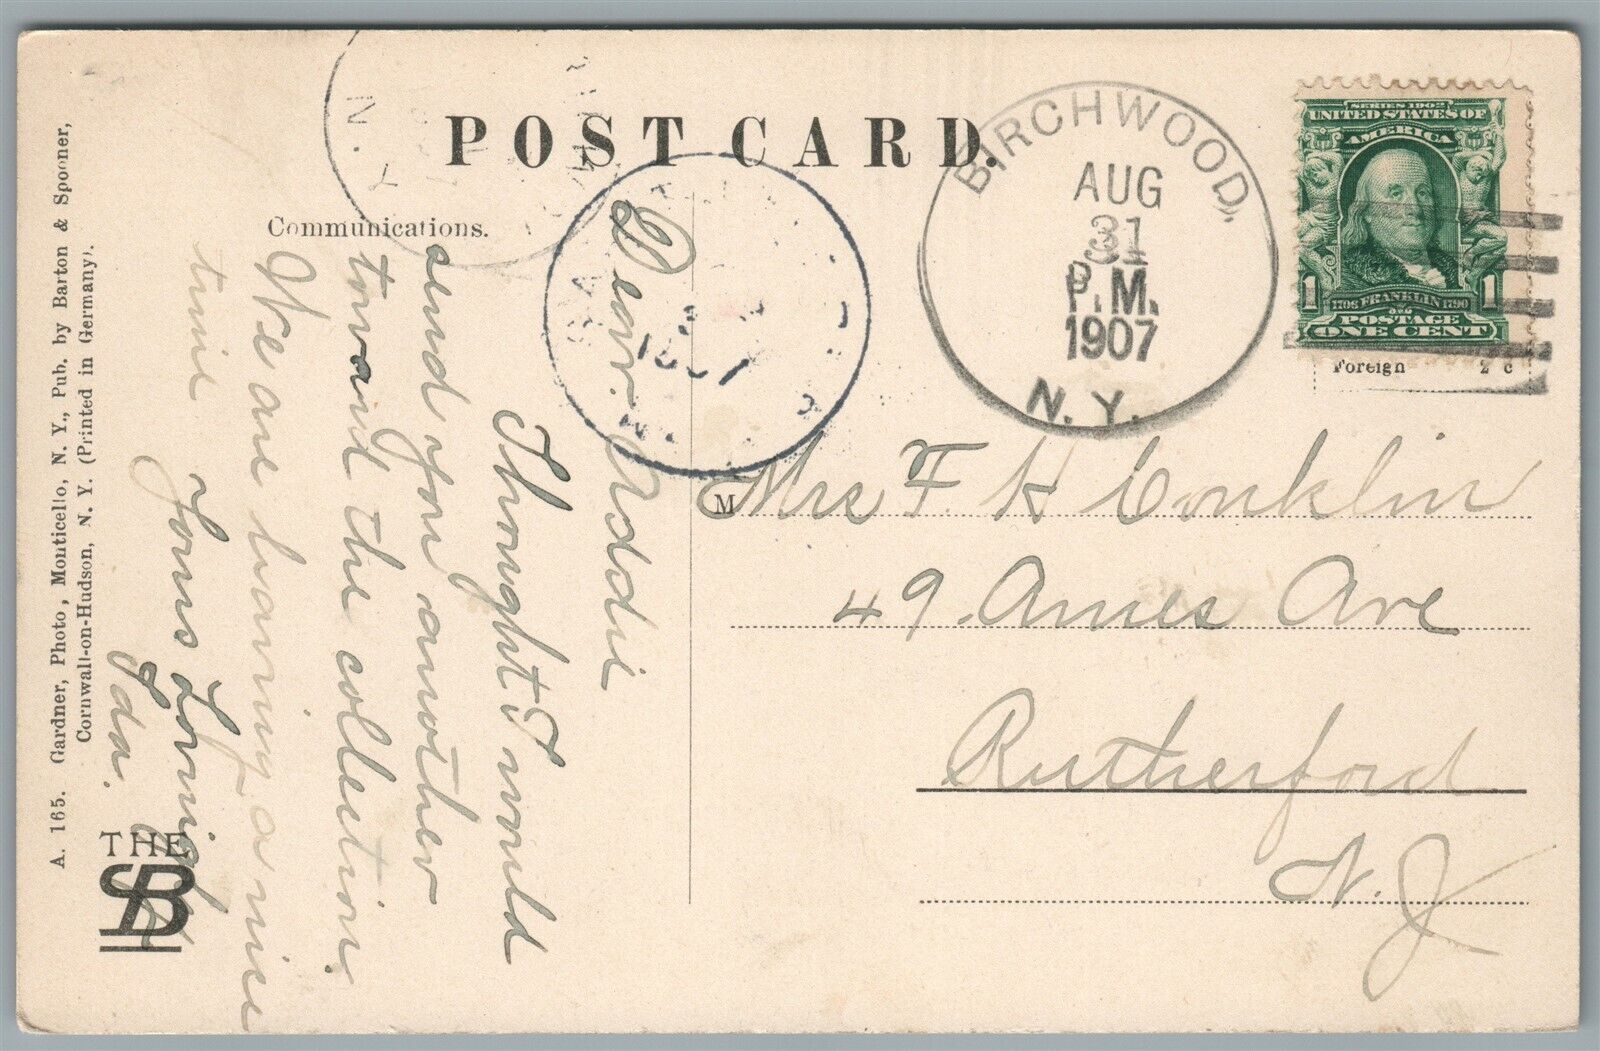 POST CARD.
Communications.
Dear Addie
Thought I would
send you another
toward the collection.
We are having a nice
time
Yours Lovingly
Ada.
BIRCHWOOD,
AUG
31
P.M.
1907
N. Y.
N. Y.
1907
SERIES 1902
UNITED STATES OF
AMERICA
1 1706 FRANKLIN 1790 1
POSTAGE
ONE CENT
Foreign 2 c
Mrs F H Conklin
49. Ames Ave
Rutherford
N. J
A. 165. Gardner, Photo, Monticello, N. Y., Pub. by Barton & Spooner,
Cornwall-on-Hudson, N. Y. (Printed in Germany).
THE
SB